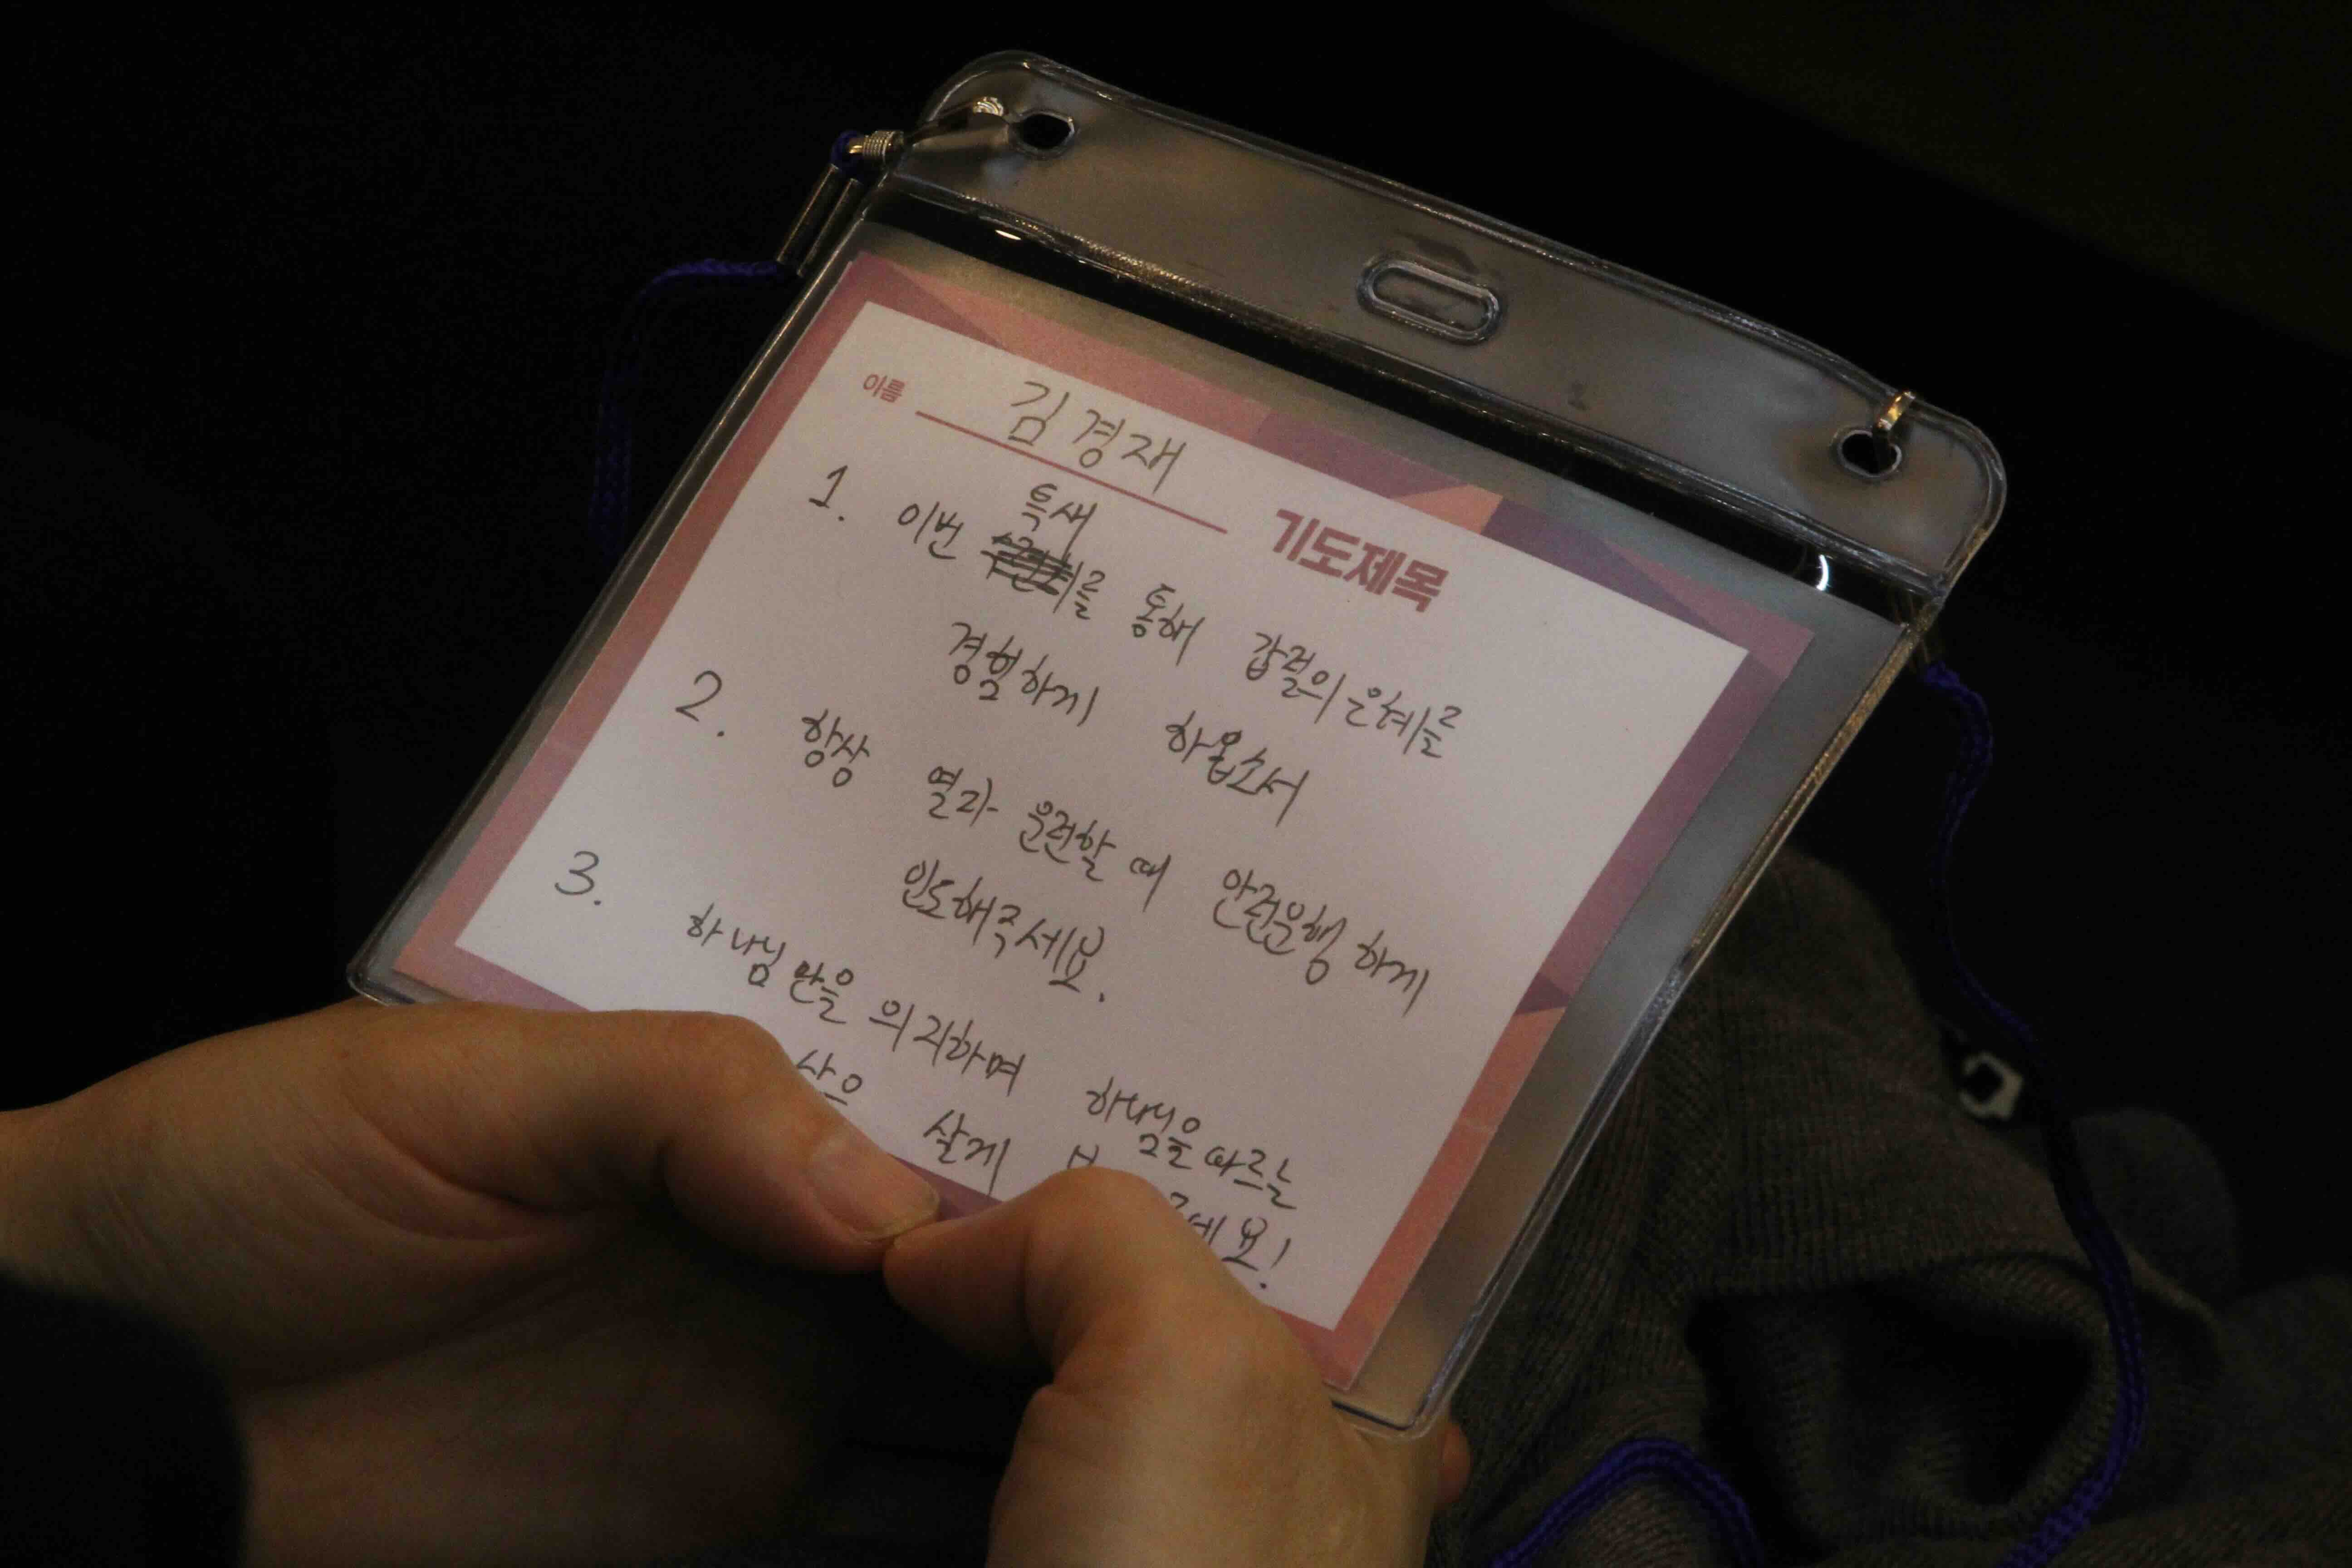 이름 김경재 기도제목
특새
1. 이번 를 통해 갑절의 은혜를
경험하게 하옵소서
2. 항상 열차 운전할 때 안전운행 하게
인도해주세요.
3. 하나님만을 의지하며 하나님을 따르는
삶을 살게
세요!